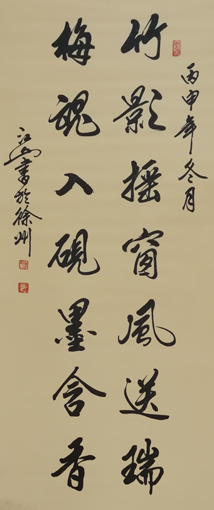 丙申年冬月
竹影摇窗风送瑞
梅魂入砚墨含香
书于徐州